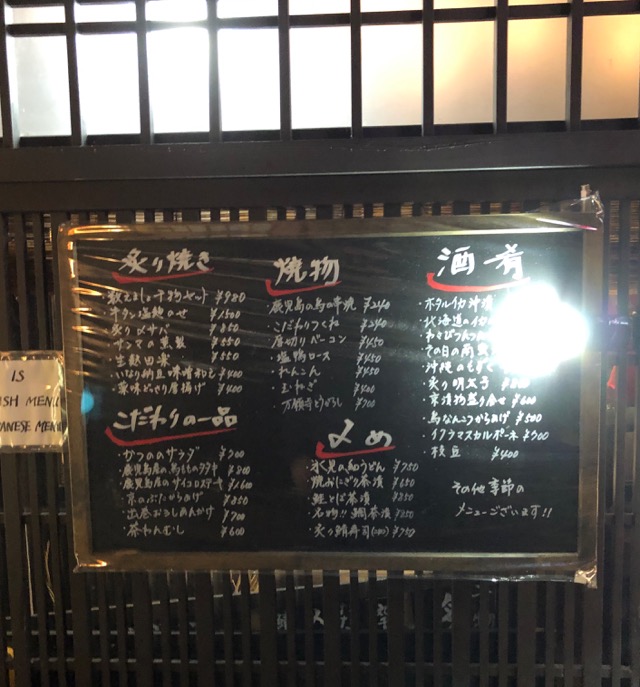 炙り焼き
干物セット ¥980
牛タン塩麹のせ ¥1500
炙り〆サバ ¥850
サンマの薫製 ¥550
生麩田楽 ¥550
いなり納豆味噌和え ¥400
薬味どっさり厚揚げ ¥400
こだわりの一品
かつののサラダ ¥700
鹿児島産の鳥もものタタキ
鹿児島産のサイコロステーキ ¥1600
京のぶたからあげ ¥850
出巻おろしあんかけ ¥700
・茶わんむし ¥600
焼物
・鹿児島の鳥の串焼 ¥240
・こだわりつくね ¥240
・厚切りベーコン ¥450
・塩鴨ロース ¥450
・れんこん ¥450
・玉ねぎ ¥400
・万願寺とうがらし ¥700
〆め
・氷見の細うどん ¥750
・焼おにぎり茶漬 ¥650
・鮭とば茶漬 ¥850
・名物!!鯛茶漬 ¥850
・炙り鯖寿司 ¥750
酒肴
・ホタルイカ沖漬
・北海道のイカの
・わさび
・その日の南蛮
・沖縄のもずく
・炙り明太子
・京漬物盛り合せ ¥600
・鳥なんこつからあげ ¥500
・イクラマスカルポーネ ¥700
・枝豆 ¥400
その他季節の
メニューございます!!
IS
ISH MENU
PANESE MENU